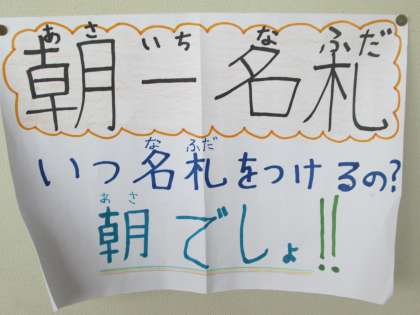 あさ いち な ふだ
朝一名札
な ふだ
いつ名札をつけるの?
あさ
朝でしょ!!